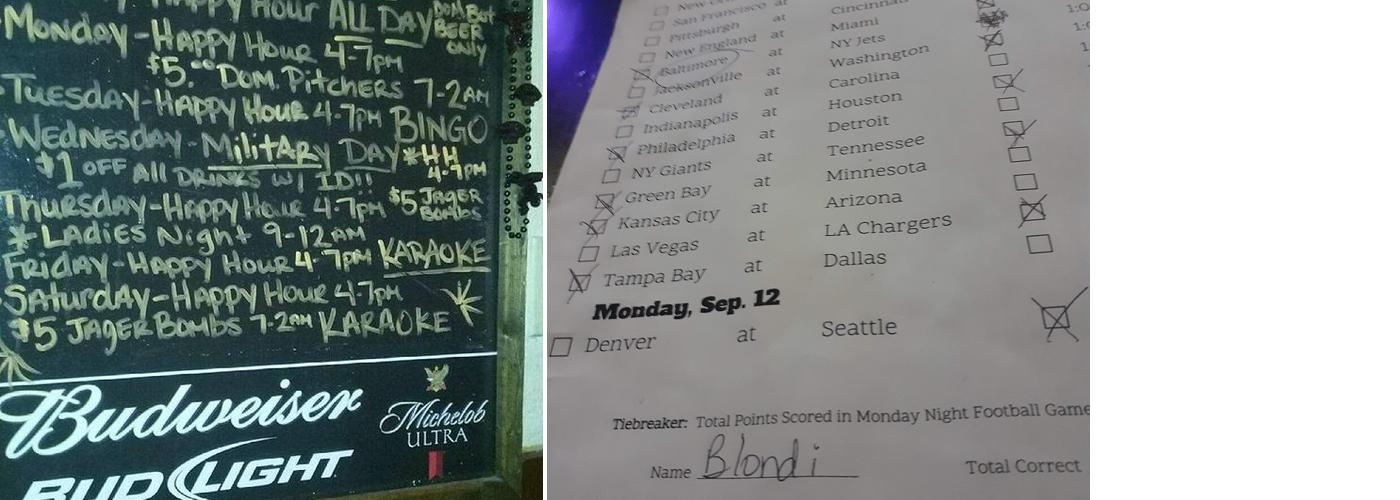 Happy Hour ALL DAY DOM BOT
BEER
ONLY
Monday - Happy Hour 4-7pm
$5.00 Dom. Pitchers 7-2AM
Tuesday - Happy Hour 4-7pm BINGO
Wednesday - Military Day *HH
4-7pm
$1 OFF All DRINKS W/ ID!!
Thursday - Happy Hour 4-7pm $5 JAGER
BOMBS
*LADIES Night 9-12AM
FRIDAY - HAPPY HOUR 4-7pm KARAOKE
SATURDAY - HAPPY HOUR 4-7pm
$5 JAGER BOMBS 7-2am KARAOKE
Budweiser
Michelob
ULTRA
BUD LIGHT
San Francisco at
Cincinnati
Pittsburgh at Miami
New England at NY Jets
Baltimore at Washington
Jacksonville at Carolina
Cleveland at Houston
Indianapolis at Detroit
Philadelphia at Tennessee
NY Giants at Minnesota
Green Bay at Arizona
Kansas City at LA Chargers
Las Vegas at Dallas
Tampa Bay at
Monday, Sep. 12
Denver at Seattle
Tiebreaker: Total Points Scored in Monday Night Football Game
Name Blondi Total Correct